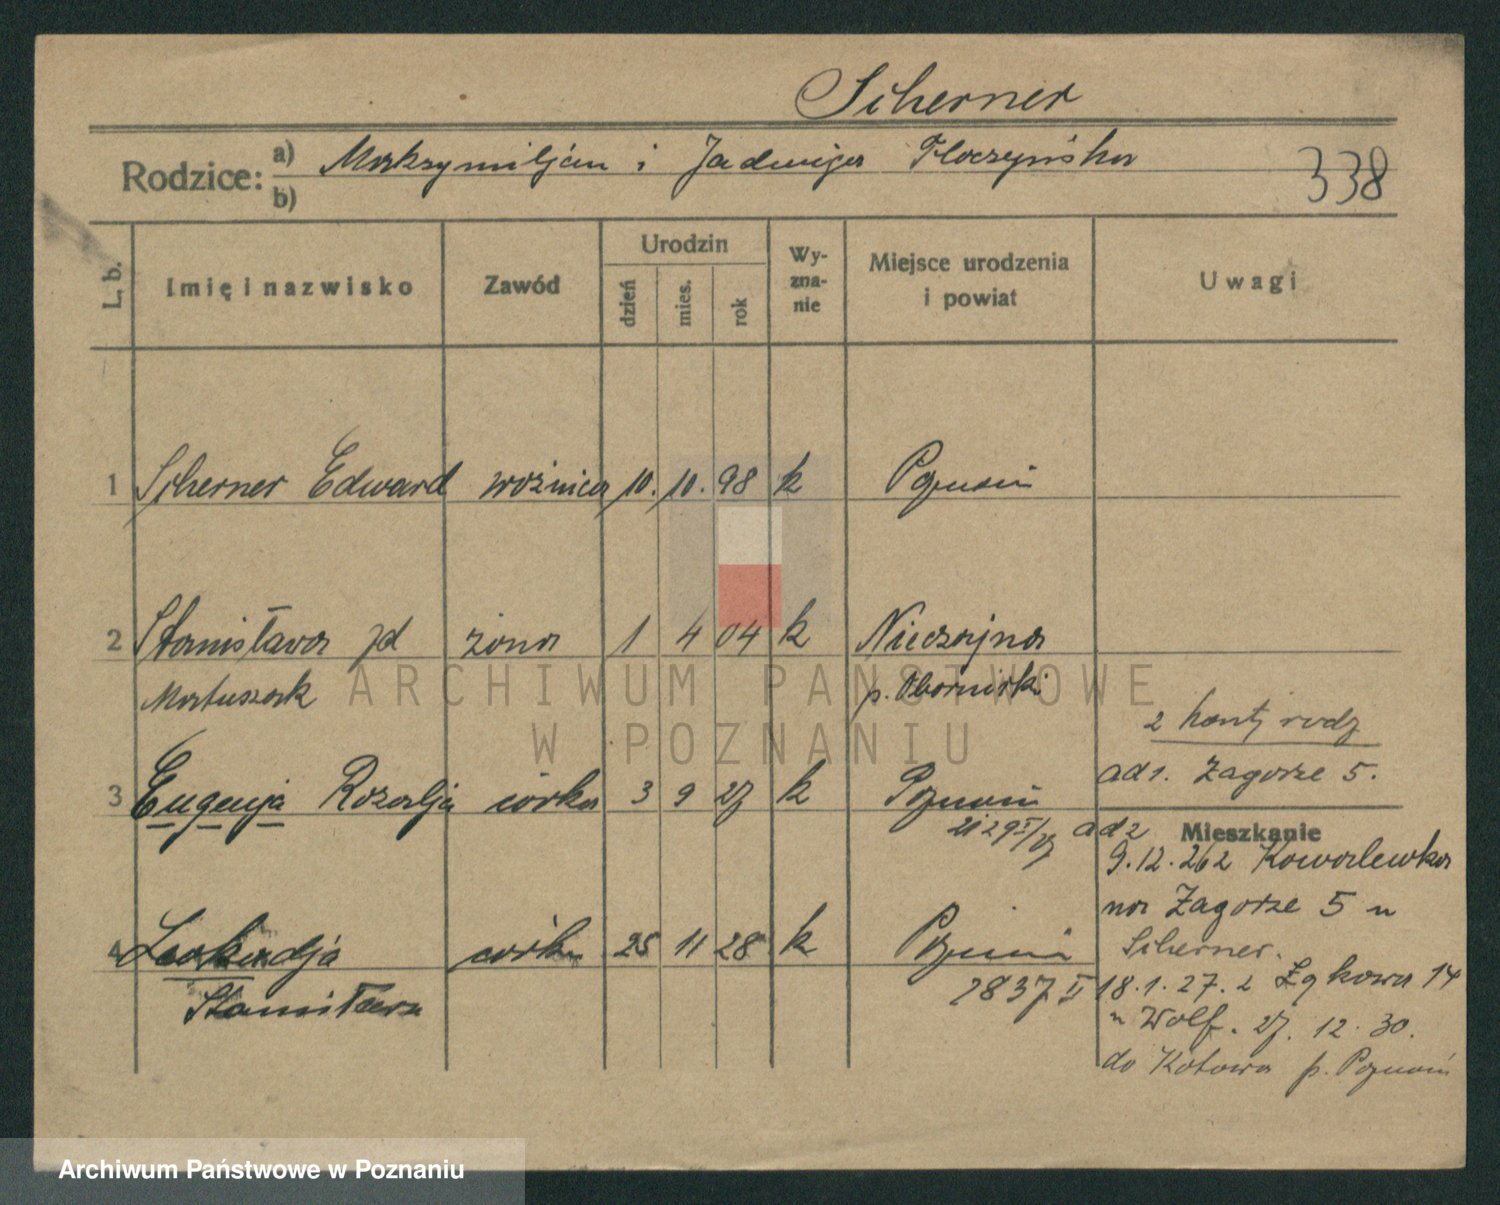 Scherner
Rodzice: a) Maksymiljan i Jadwiga
b)
338
L. b.
Imię i nazwisko
Zawód
Urodzin
dzień
mies.
rok
Wy-
zna-
nie
Miejsce urodzenia
i powiat
Uwagi
1 Scherner Edward woźnica 10. 10. 98 k Poznań
2 Stanisława zd żona 1 4 04 k Nieczajna
Matuszak p. Oborniki
2 kartj rodz
ad 1. Zagorze 5.
3 Eugenja Rozalja córka 3 9 27 k Poznań
ad 2
Mieszkanie
9.12.26 z Kowalewka
na Zagorze 5 u
Scherner.
4 Leokadja córka 25 11 28 k Poznań
Stanisława
2837 II
18.1.27. z Łąkowa 14
u Wolf. 27. 12. 30.
do Kotowa p. Poznań
ARCHIWUM PAŃSTWOWE
W POZNANIU
Archiwum Państwowe w Poznaniu